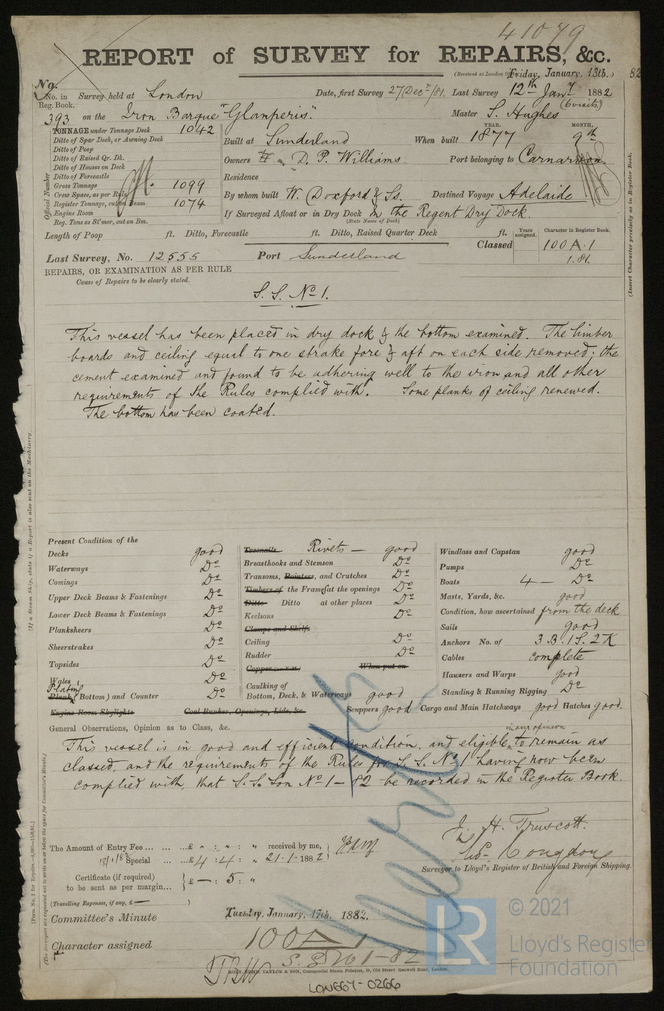 41079
REPORT of SURVEY for REPAIRS, &c.
(Received at London Friday, January 13th. 82
No. in Survey held at London Date, first Survey 27 Dec 1881. Last Survey 12th Jan 1882
Reg. Book. (6 visits)
393 on the Iron Barque "Glamperis". Master S. Hughes
TONNAGE under Tonnage Deck 1042
Ditto of Spar Deck, or Awning Deck
Ditto of Poop
Ditto of Raised Qr. Dk.
Ditto of Houses on Deck
Ditto of Forecastle
Gross Tonnage 1099
Crew Space, as per Rule
Register Tonnage, cut on Beam 1074
Engine Room
Reg. Tons as St'mer, cut on Bm.
Official Number
Built at Sunderland When built YEAR. 1877 MONTH. 9th
Owners D. P. Williams Port belonging to Carnarvon
Residence
By whom built W. Doxford & Ss. Destined Voyage Adelaide
If Surveyed Afloat or in Dry Dock In the Regent Dry Dock.
(State Name of Dock)
Length of Poop ft. Ditto, Forecastle ft. Ditto, Raised Quarter Deck ft.
Years assigned. Character in Register Book.
Classed 100 A.1
1.81.
Last Survey, No. 12555 Port Sunderland
REPAIRS, OR EXAMINATION AS PER RULE
Cause of Repairs to be clearly stated.
S.S. No 1.
This vessel has been placed in dry dock & the bottom examined. The limber
boards and ceiling equal to one strake fore & aft on each side removed; the
cement examined and found to be adhering well to the iron and all other
requirements of the Rules complied with. Some planks of ceiling renewed.
The bottom has been coated.
Present Condition of the
Decks good
Waterways Do
Comings Do
Upper Deck Beams & Fastenings Do
Lower Deck Beams & Fastenings Do
Planksheers Do
Sheerstrakes Do
Topsides Do
Wales Do
Plating
Bottom) and Counter Do
Engine Room Skylights Coal Bunker, Openings, Lids, &c.
Treenails Rivets — good
Breasthooks and Stemson Do
Transoms, Pointers, and Crutches Do
Timbers of the Frame at the openings Do
Ditto Ditto at other places Do
Keelsons Do
Clamps and Shelfs
Ceiling Do
Rudder Do
Copper When put on
Caulking of
Bottom, Deck, & Waterways good
Scuppers good Cargo and Main Hatchways good Hatches good.
Windlass and Capstan good
Pumps Do
Boats 4 — Do
Masts, Yards, &c. good
Condition, how ascertained from the deck
Sails good
Anchors No. of 3 B. 1 S. 2 K
Cables complete
Hawsers and Warps good
Standing & Running Rigging Do
General Observations, Opinion as to Class, &c.
in our opinion
This vessel is in good and efficient condition, and eligible to remain as
classed, and the requirements of the Rules for S.S. No 1 having now been
complied with, that S.S. Lon No 1 – 82 be recorded in the Register Book.
The Amount of Entry Fee ... £ received by me,
Special ... £4 : 4 : 21.1.1882
Certificate (if required) £ — : 5 :
to be sent as per margin...
(Travelling Expenses, if any, £ )
J. H. Truscott.
Congdon
Surveyor to Lloyd's Register of British and Foreign Shipping.
Committee's Minute Tuesday, January 17th, 1882.
Character assigned 100 A 1
LON667-0266
© 2021
LR
Lloyd's Register
Foundation